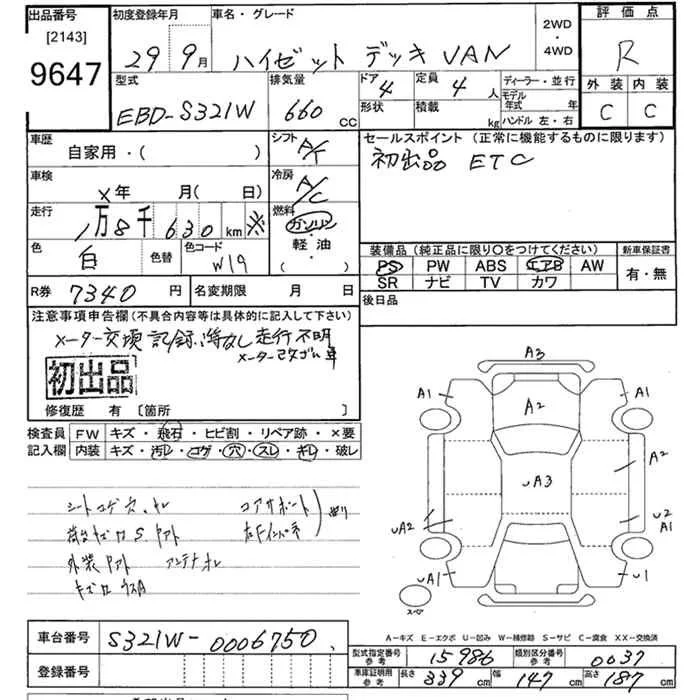 出品番号
[2143]
9647
初度登録年月
29 9月
車名・グレード
ハイゼット デッキ VAN
2WD
・
4WD
評価点
R
外装 内装
C C
型式
EBD-S321W
排気量
660 CC
ドア 4
形状
定員 4 人
積載 kg
ディーラー・並行
モデル年式 年
ハンドル 左・右
車歴
自家用・( )
シフト
A/T
セールスポイント (正常に機能するものに限ります)
初出品 ETC
車検
×年 月( 日)
冷房
A/C
走行
1万8千630 km ※
燃料
ガソリン
軽油
( )
色
白
色替
色コード
W19
装備品(純正品に限り○をつけてください)
PS PW ABS エアB AW
SR ナビ TV カワ
新車保証書
有・無
R券 7340 円
名変期限 月 日
後日品
注意事項申告欄(不具合内容等は具体的に記入して下さい)
メーター交換 記録 等なし 走行不明
メーター改ざん車
初出品
修復歴 有 [箇所 ]
検査員
記入欄
FW キズ・飛石・ヒビ割・リペア跡・×要
内装 キズ・汚レ・コゲ・穴・スレ・キレ・破レ
シートコゲ穴
コアサポート
外装
アンテナ
A3
A1
A1
A2
A2
uA3
uA2
u2
A1
uA1
u1
スペア
A-キズ E-エクボ U-凹み W-補修跡 S-サビ C-腐食 XX-交換済
車台番号 S321W-0006750
登録番号
型式指定番号
参考
15986
類別区分番号
参考
0037
車庫証明用
参考
長さ 339 cm
幅 147 cm
高さ 187 cm